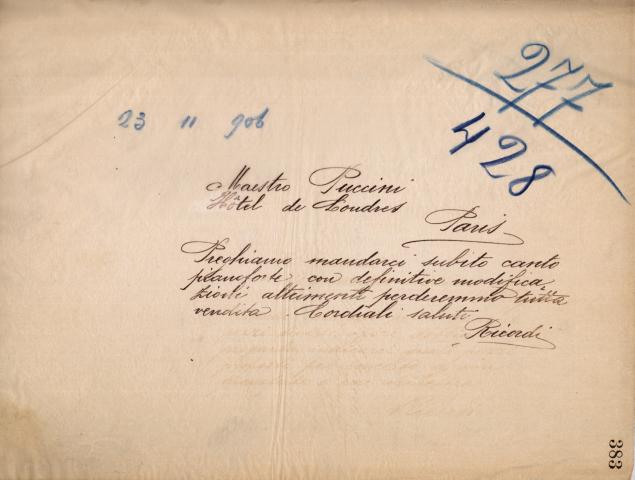 277
428
23 11 906
Maestro Puccini
Hôtel de Londres
Paris
Preghiamo mandarci subito canto
pianoforte con definitive modifica
zioni altrimenti perderemmo tutta
vendita. Cordiali saluti
Ricordi
383